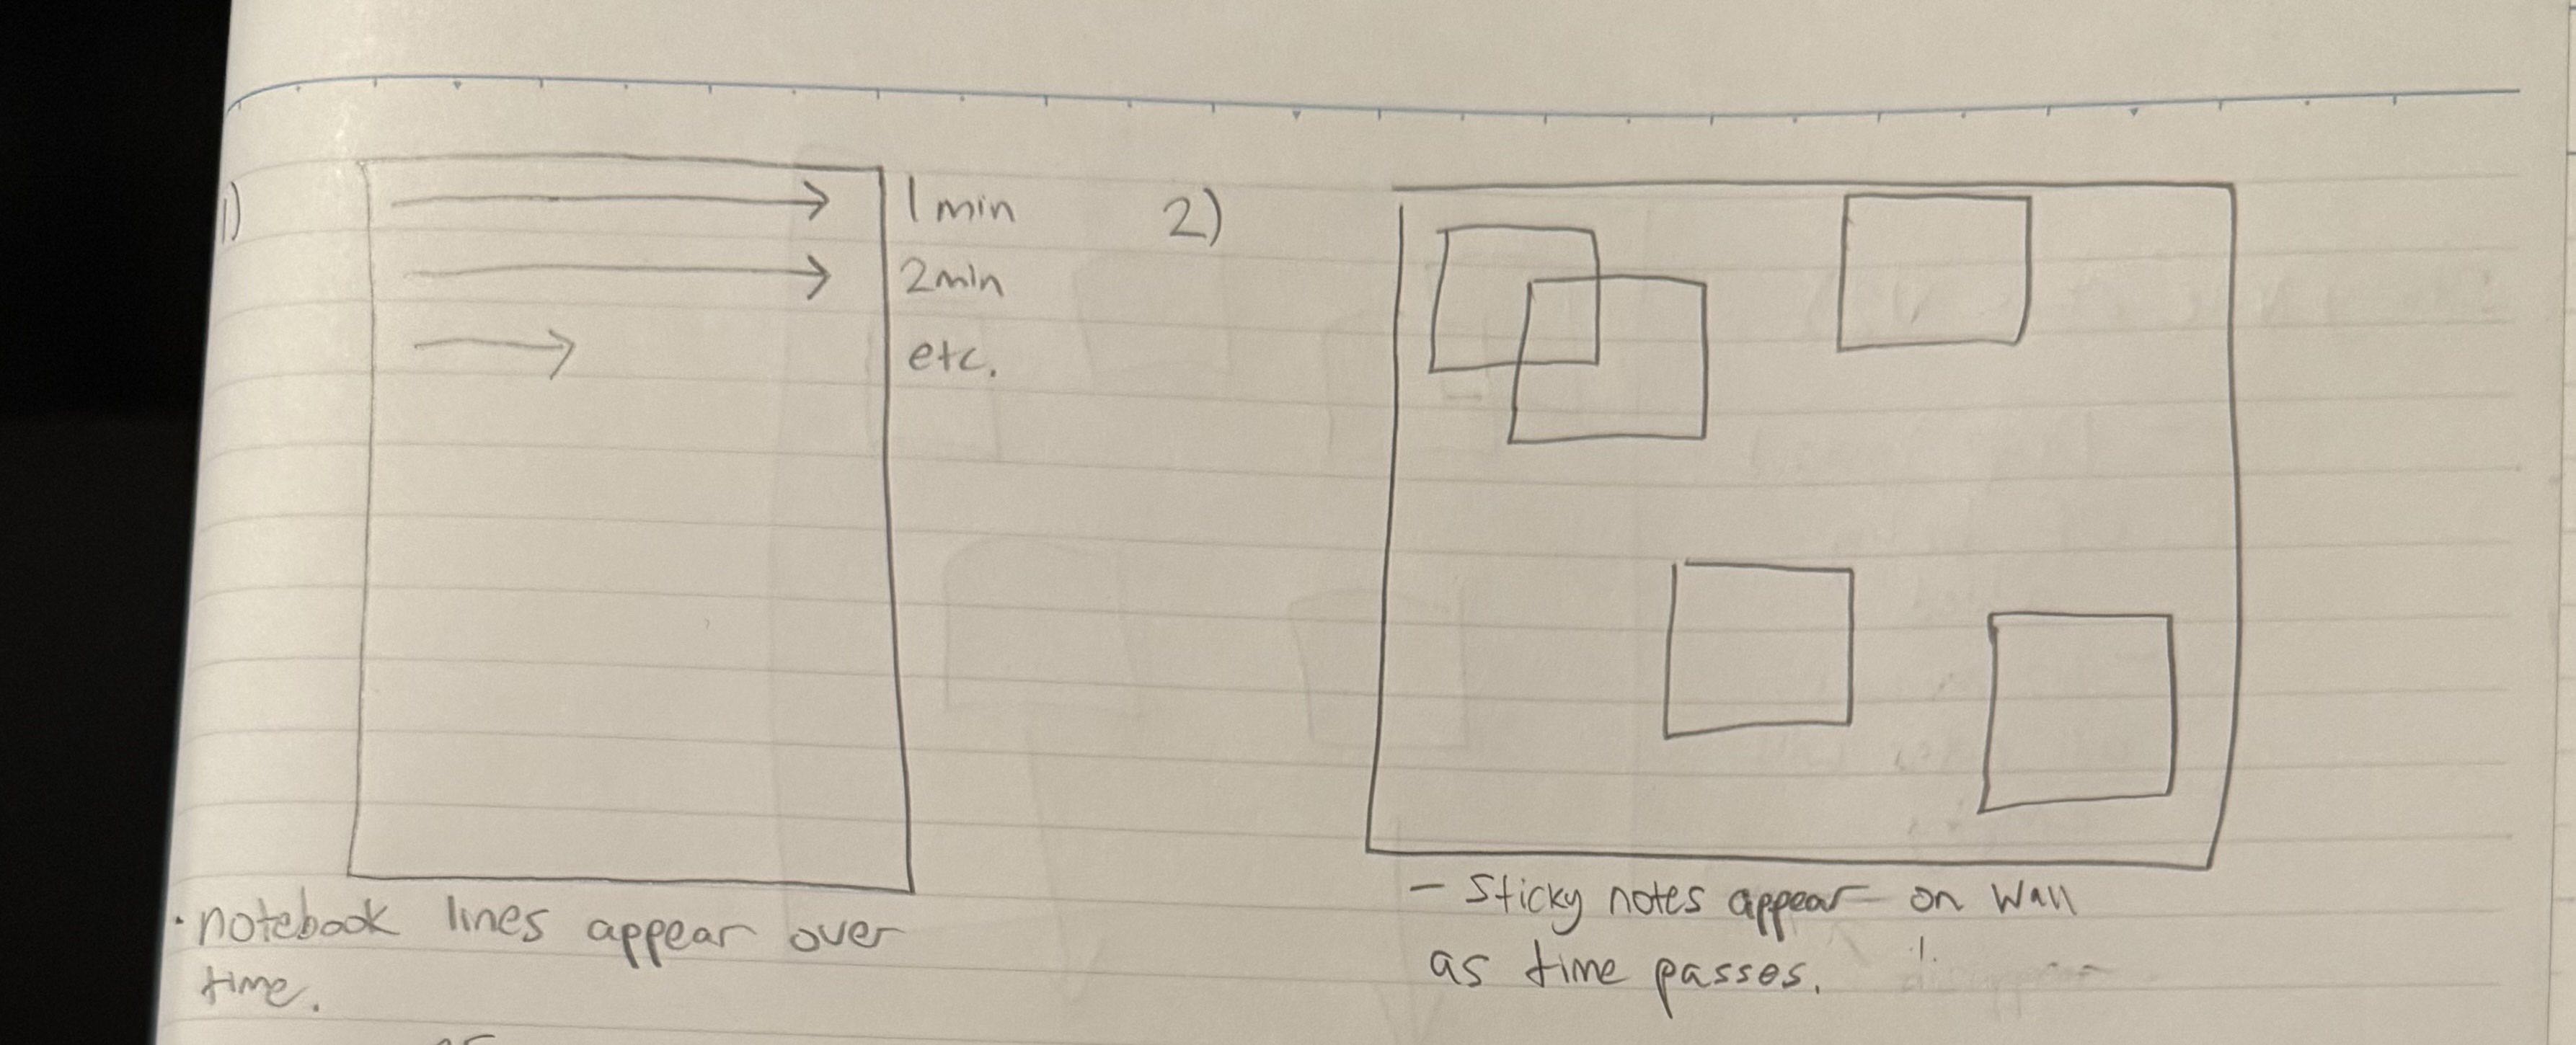 1)
1 min
2min
etc.
• notebook lines appear over
time.
2)
- Sticky notes appear on wall
as time passes.